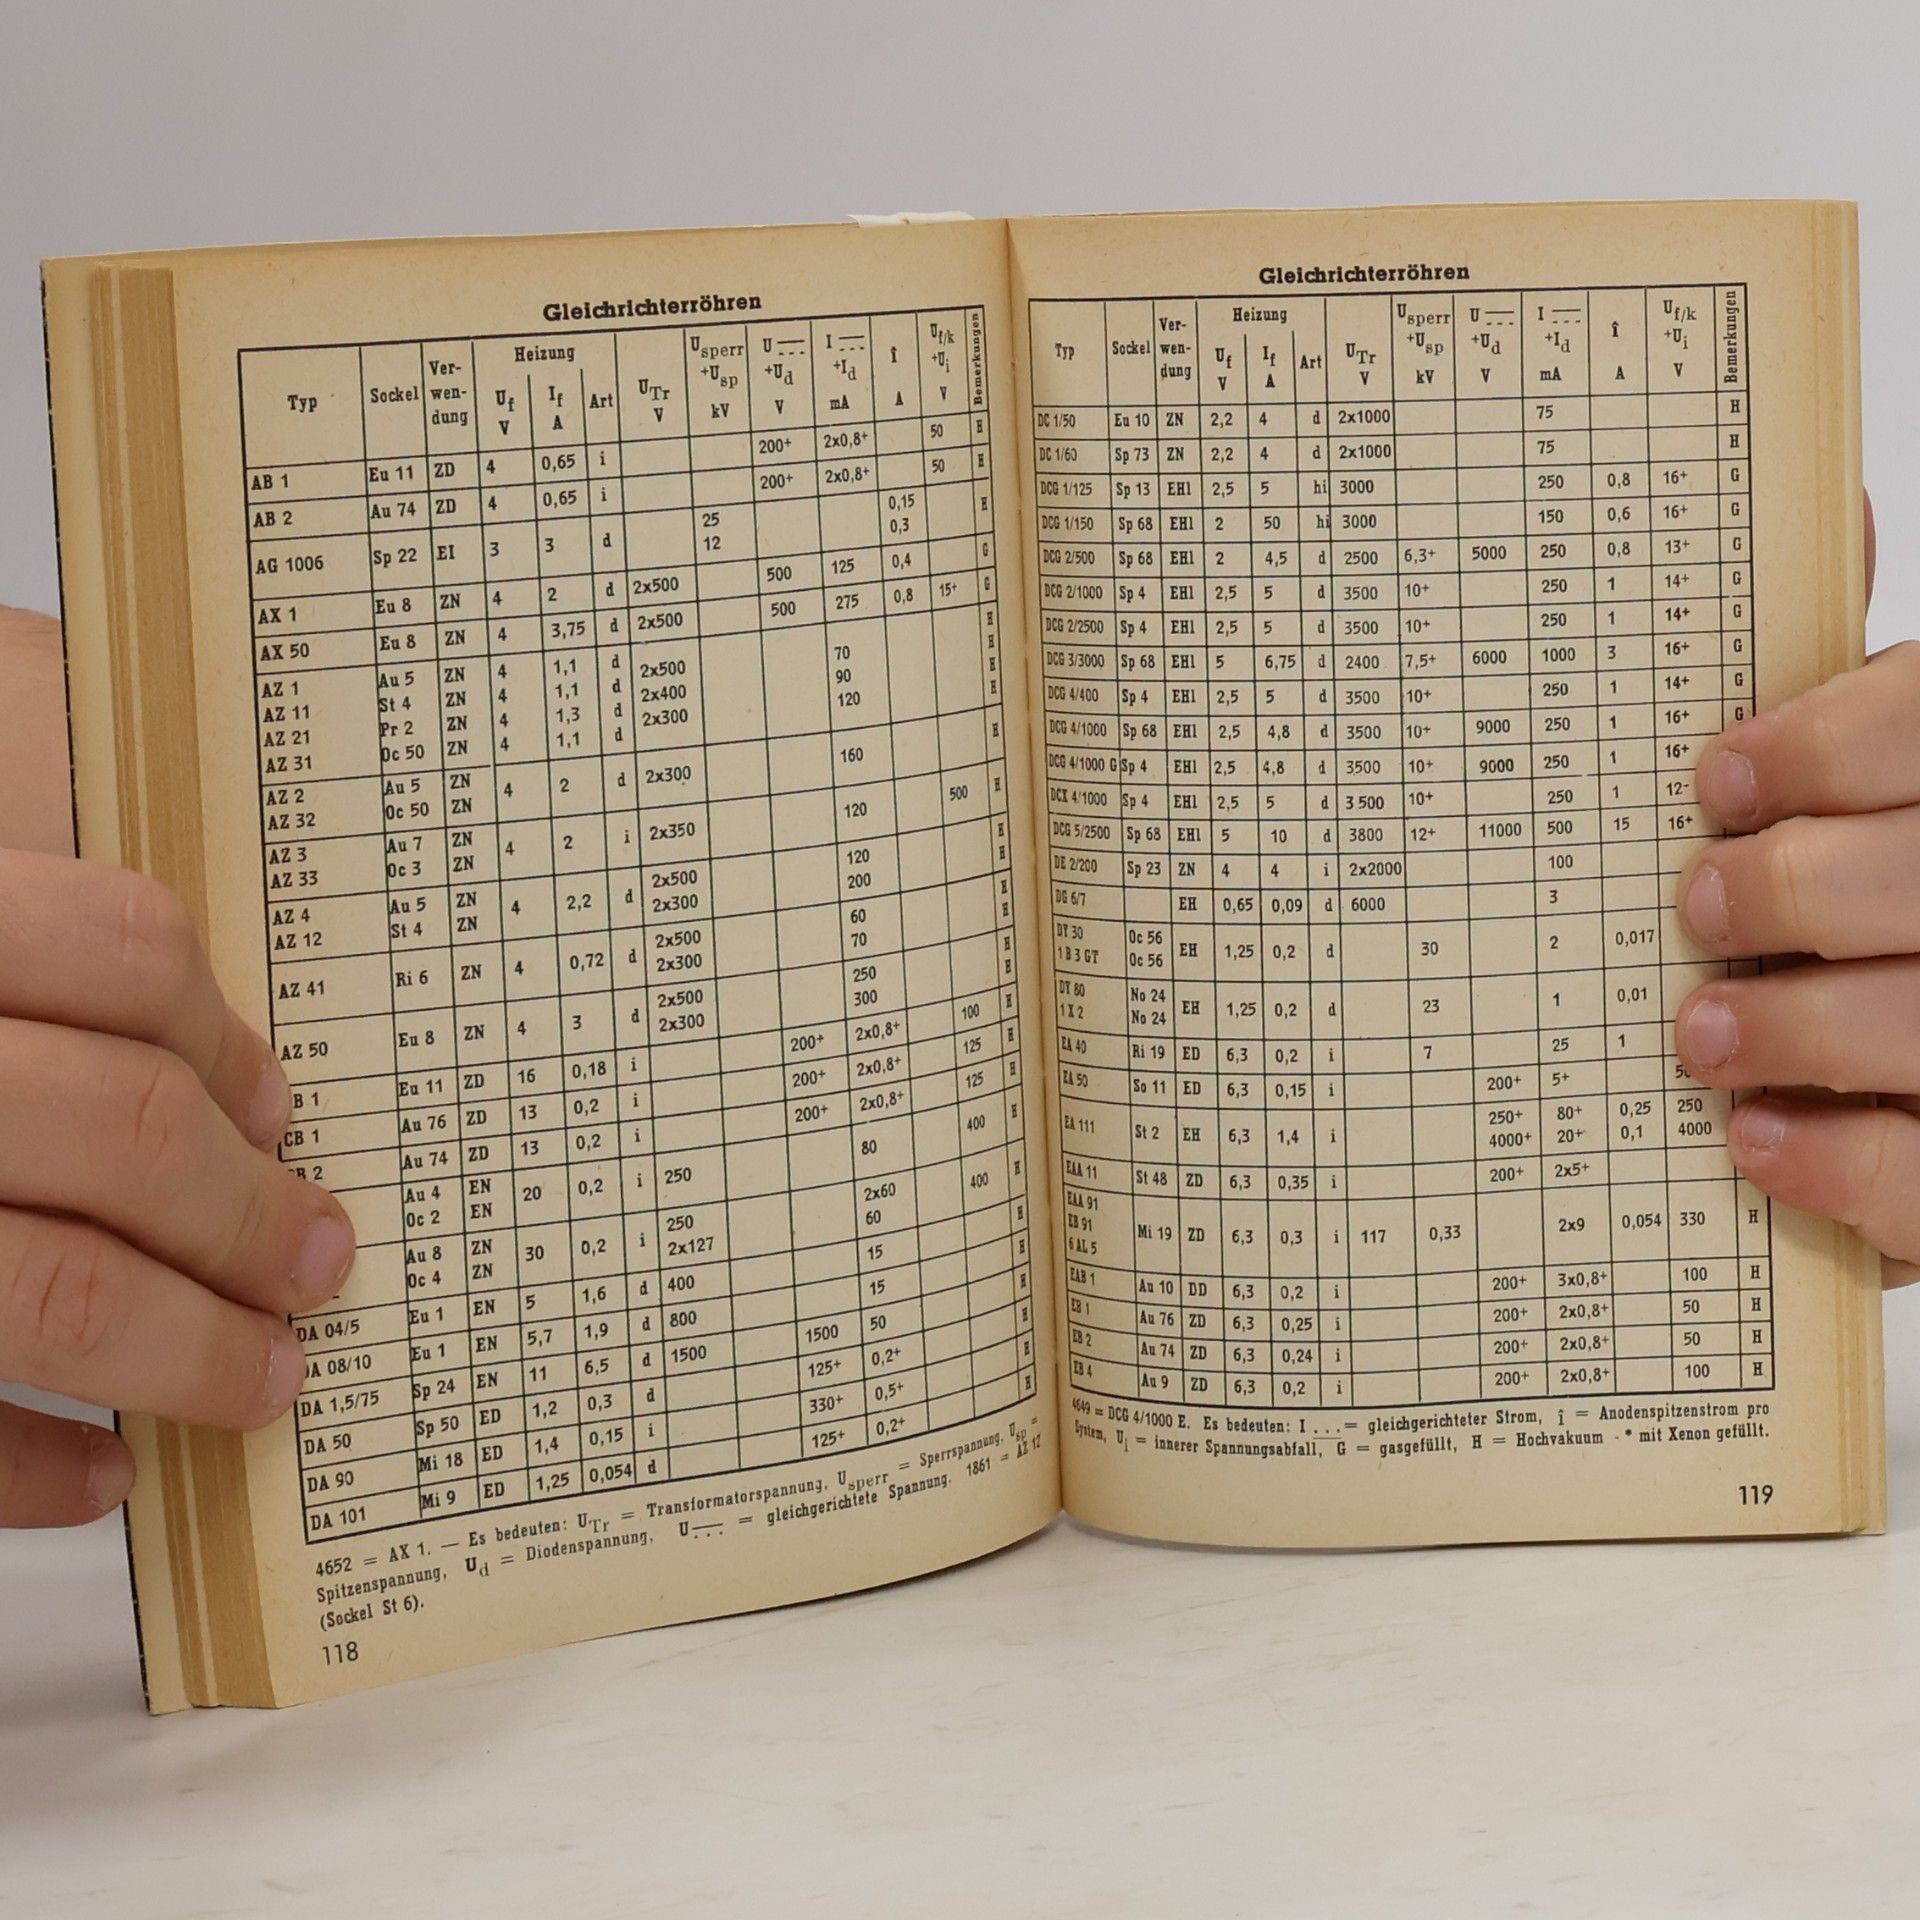 Gleichrichterröhren
Typ Sockel Ver-wen-dung Heizung Uf V If A Art UTr V Usperr +Usp kV U +Ud V I +Id mA î A Uf/k +Ui V Bemerkungen
AB 1 Eu 11 ZD 4 0,65 i 200+ 2x0,8+ 50 H
AB 2 Au 74 ZD 4 0,65 i 200+ 2x0,8+ 50 H
AG 1006 Sp 22 EI 3 3 d 25 0,15 H
12 0,3
AX 1 Eu 8 ZN 4 2 d 2x500 500 125 0,4 G
AX 50 Eu 8 ZN 4 3,75 d 2x500 500 275 0,8 15+ G
AZ 1 Au 5 ZN 4 1,1 d 2x500 70 H
AZ 11 St 4 ZN 4 1,1 d 2x400 90 H
AZ 21 Pr 2 ZN 4 1,3 d 2x300 120 H
AZ 31 Oc 50 ZN 4 1,1 d H
AZ 2 Au 5 ZN 4 2 d 2x300 160 H
AZ 32 Oc 50 ZN
AZ 3 Au 7 ZN 4 2 i 2x350 120 500 H
AZ 33 Oc 3 ZN
AZ 4 Au 5 ZN 4 2,2 d 2x500 120 H
AZ 12 St 4 ZN 2x300 200 H
AZ 41 Ri 6 ZN 4 0,72 d 2x500 60 H
2x300 70 H
AZ 50 Eu 8 ZN 4 3 d 2x500 250 H
2x300 300 H
B 1 Eu 11 ZD 16 0,18 i 200+ 2x0,8+ 100 H
CB 1 Au 76 ZD 13 0,2 i 200+ 2x0,8+ 125 H
B 2 Au 74 ZD 13 0,2 i 200+ 2x0,8+ 125 H
Au 4 EN 20 0,2 i 250 80 400 H
Oc 2 EN
Au 8 ZN 30 0,2 i 250 2x60 400 H
Oc 4 ZN 2x127 60
DA 04/5 Eu 1 EN 5 1,6 d 400 15 H
DA 08/10 Eu 1 EN 5,7 1,9 d 800 15 H
DA 1,5/75 Sp 24 EN 11 6,5 d 1500 1500 50 H
DA 50 Sp 50 ED 1,2 0,3 d 125+ 0,2+ H
DA 90 Mi 18 ED 1,4 0,15 i 330+ 0,5+ H
DA 101 Mi 9 ED 1,25 0,054 d 125+ 0,2+ H
4652 = AX 1. — Es bedeuten: UTr = Transformatorspannung, Usperr = Sperrspannung, Usp =
Spitzenspannung, Ud = Diodenspannung, U = gleichgerichtete Spannung. 1861 = AZ 12
(Sockel St 6).
118
Gleichrichterröhren
Typ Sockel Ver-wen-dung Heizung Uf V If A Art UTr V Usperr +Usp kV U +Ud V I +Id mA î A Uf/k +Ui V Bemerkungen
DC 1/50 Eu 10 ZN 2,2 4 d 2x1000 75 H
DC 1/60 Sp 73 ZN 2,2 4 d 2x1000 75 H
DCG 1/125 Sp 13 EHl 2,5 5 hi 3000 250 0,8 16+ G
DCG 1/150 Sp 68 EHl 2 50 hi 3000 150 0,6 16+ G
DCG 2/500 Sp 68 EHl 2 4,5 d 2500 6,3+ 5000 250 0,8 13+ G
DCG 2/1000 Sp 4 EHl 2,5 5 d 3500 10+ 250 1 14+ G
DCG 2/2500 Sp 4 EHl 2,5 5 d 3500 10+ 250 1 14+ G
DCG 3/3000 Sp 68 EHl 5 6,75 d 2400 7,5+ 6000 1000 3 16+ G
DCG 4/400 Sp 4 EHl 2,5 5 d 3500 10+ 250 1 14+ G
DCG 4/1000 Sp 68 EHl 2,5 4,8 d 3500 10+ 9000 250 1 16+ G
DCG 4/1000 G Sp 4 EHl 2,5 4,8 d 3500 10+ 9000 250 1 16+
DCX 4/1000 Sp 4 EHl 2,5 5 d 3 500 10+ 250 1 12-
DCG 5/2500 Sp 68 EHl 5 10 d 3800 12+ 11000 500 15 16+
DE 2/200 Sp 23 ZN 4 4 i 2x2000 100
DG 6/7 EH 0,65 0,09 d 6000 3
DY 30 Oc 56 EH 1,25 0,2 d 30 2 0,017
1 B 3 GT Oc 56
DY 80 No 24 EH 1,25 0,2 d 23 1 0,01
1 X 2 No 24
EA 40 Ri 19 ED 6,3 0,2 i 7 25 1
EA 50 So 11 ED 6,3 0,15 i 200+ 5+
EA 111 St 2 EH 6,3 1,4 i 250+ 80+ 0,25 250
4000+ 20+ 0,1 4000
EAA 11 St 48 ZD 6,3 0,35 i 200+ 2x5+
EAA 91
EB 91 Mi 19 ZD 6,3 0,3 i 117 0,33 2x9 0,054 330 H
6 AL 5
EAB 1 Au 10 DD 6,3 0,2 i 200+ 3x0,8+ 100 H
EB 1 Au 76 ZD 6,3 0,25 i 200+ 2x0,8+ 50 H
EB 2 Au 74 ZD 6,3 0,24 i 200+ 2x0,8+ 50 H
EB 4 Au 9 ZD 6,3 0,2 i 200+ 2x0,8+ 100 H
4649 = DCG 4/1000 E. Es bedeuten: I ... = gleichgerichteter Strom, î = Anodenspitzenstrom pro
System, Ui = innerer Spannungsabfall, G = gasgefüllt, H = Hochvakuum - * mit Xenon gefüllt.
119